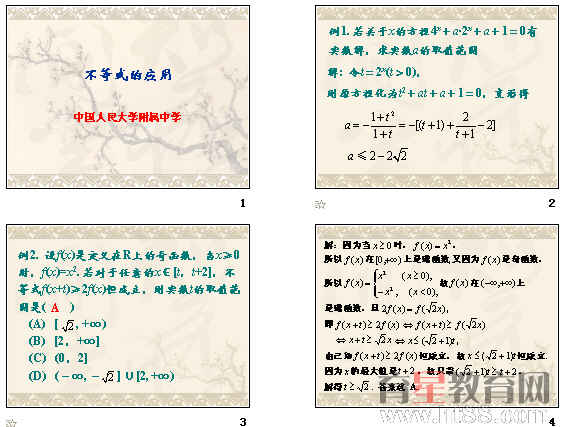 不等式的应用
中国人民大学附属中学
1
例1. 若关于x的方程4ˣ + a·2ˣ + a + 1 = 0有
实数解，求实数a的取值范围
解：令t = 2ˣ(t > 0)，
则原方程化为t² + at + a + 1 = 0，变形得
a = −(1+t²)/(1+t) = −[(t+1) + 2/(t+1) − 2]
a ≤ 2 − 2√2
2
例2. 设f(x)是定义在R上的奇函数，当x≥0
时，f(x)=x². 若对于任意的x∈[t，t+2]，不
等式f(x+t)≥2f(x)恒成立，则实数t的取值范
围是( A )
(A) [√2, +∞)
(B) [2, +∞]
(C) (0, 2]
(D) (−∞, −√2] ∪ [2, +∞)
3
解：因为当 x ≥ 0 时，f(x) = x²，
所以 f(x) 在[0,+∞)上是增函数，又因为 f(x) 是奇函数，
所以 f(x) = { x² (x ≥ 0), −x², (x < 0), 故 f(x) 在(−∞,+∞)上
是增函数，且 2f(x) = f(√2x)，
即 f(x+t) ≥ 2f(x) ⇔ f(x+t) ≥ f(√2x)
⇔ x+t ≥ √2x ⇔ x ≤ (√2+1)t，
由已知 f(x+t) ≥ 2f(x) 恒成立，故 x ≤ (√2+1)t 恒成立.
因为 x 的最大值是 t+2，故只需 (√2+1)t ≥ t+2，
解得 t ≥ √2. 答案选 A
4
青星教育网